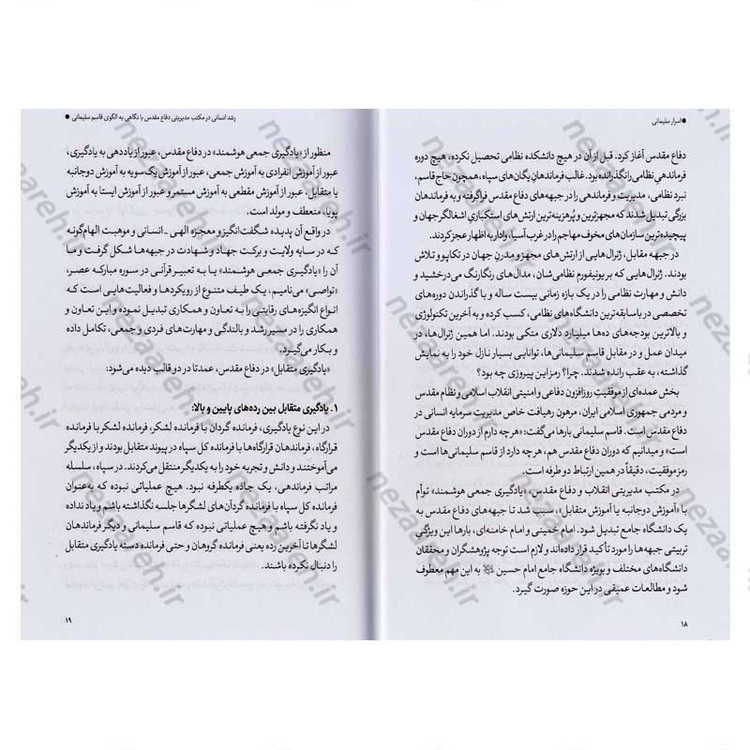 اسرار سلیمانی
دفاع مقدس آغاز کرد. قبل از آن در هیچ دانشکده نظامی تحصیل نکرده، هیچ دوره
فرماندهی نظامی را نگذرانده بود. غالب فرماندهان یگان‌های سپاه، همچون حاج قاسم،
نبرد نظامی، مدیریت و فرماندهی را در جبهه‌های دفاع مقدس فراگرفته و به فرماندهان
بزرگی تبدیل شدند که مجهزترین و پُرهزینه‌ترین ارتش‌های استکباری اشغالگر جهان و
پیچیده‌ترین سازمان‌های مخوف مهاجم را در غرب آسیا، وادار به اظهار عجز کردند.
در جبهه مقابل، ژنرال‌هایی از ارتش‌های مجهز و مدرنِ جهان در تکاپو و تلاش
بودند. ژنرال‌هایی که بر یونیفورم نظامی‌شان، مدال‌های رنگارنگ می‌درخشید و
دانش و مهارت نظامی را در یک بازه زمانی بیست ساله و با گذراندن دوره‌های
تخصصی در باسابقه‌ترین دانشگاه‌های نظامی، کسب کرده و به آخرین تکنولوژی
و بالاترین بودجه‌های ده‌ها میلیارد دلاری متکی بودند. اما همین ژنرال‌ها، در
میدان عمل و در مقابل قاسم سلیمانی‌ها، توانایی بسیار نازل خود را به نمایش
گذاشته، به عقب رانده شدند. چرا؟ رمز این پیروزی چه بود؟
بخش عمده‌ای از موفقیتِ روزافزون دفاعی و امنیتی انقلاب اسلامی و نظام مقدس
و مردمی جمهوری اسلامی ایران، مرهون رهیافت خاص مدیریت سرمایه انسانی در
دفاع مقدس است. قاسم سلیمانی بارها می‌گفت: «هرچه دارم از دوران دفاع مقدس
است» و میدانیم که دوران دفاع مقدس هم، هرچه دارد از قاسم سلیمانی‌ها است و
رمز موفقیت، دقیقاً در همین ارتباط دو طرفه است.
در مکتب مدیریتی انقلاب و دفاع مقدس، «یادگیری جمعی هوشمند» توأم
با «آموزش دوجانبه یا آموزش متقابل»، سبب شد تا جبهه‌های دفاع مقدس به
یک دانشگاه جامع تبدیل شود. امام خمینی و امام خامنه‌ای، بارها این ویژگی
تربیتی جبهه‌ها را مورد تأکید قرار داده‌اند و لازم است توجه پژوهشگران و محققان
دانشگاه‌های مختلف و بویژه دانشگاه جامع امام حسین به این مهم معطوف
شود و مطالعات عمیقی در این حوزه صورت گیرد.
۱۸
رشد انسانی در مکتب مدیریتی دفاع مقدس با نگاهی به الگوی قاسم سلیمانی
منظور از «یادگیری جمعی هوشمند» در دفاع مقدس، عبور از یاددهی به یادگیری،
عبور از آموزش انفرادی به آموزش جمعی، عبور از آموزش یک سویه به آموزش دوجانبه
یا متقابل، عبور از آموزش مقطعی به آموزش مستمر و عبور از آموزش ایستا به آموزش
پویا، منعطف و مولد است.
در واقع آن پدیده شگفت‌انگیز و معجزه الهی ـ انسانی و موهبت الهام‌گونه
که در سایه ولایت و برکت جهاد و شهادت در جبهه‌ها شکل گرفت و ما
آن را «یادگیری جمعی هوشمند» یا به تعبیر قرآنی در سوره مبارکه عصر،
«تواصی» می‌نامیم، یک طیف متنوع از رویکردها و فعالیت‌هایی است که
انواع انگیزه‌های رقابتی را به تعاون و همکاری تبدیل نموده و این تعاون و
همکاری را در مسیر رشد و بالندگی و مهارت‌های فردی و جمعی، تکامل داده
و بکار می‌گیرد.
«یادگیری متقابل» در دفاع مقدس، عمدتا در دو قالب دیده می‌شود:
۱. یادگیری متقابل بین رده‌های پایین و بالا:
در این نوع یادگیری، فرمانده گردان با فرمانده لشکر، فرمانده لشکر با فرمانده
قرارگاه، فرماندهان قرارگاه‌ها با فرمانده کل سپاه در پیوند متقابل بودند و از یکدیگر
می‌آموختند و دانش و تجربه خود را به یکدیگر منتقل می‌کردند. در سپاه، سلسله
مراتب فرماندهی، یک جاده یکطرفه نبود. هیچ عملیاتی نبوده که به‌عنوان
فرمانده کل سپاه با فرمانده گردان‌های لشگرها جلسه نگذاشته باشم و یاد نداده
و یاد نگرفته باشم و هیچ عملیاتی نبوده که قاسم سلیمانی و دیگر فرماندهان
لشگرها تا آخرین رده یعنی فرمانده گروهان و حتی فرمانده دسته یادگیری متقابل
را دنبال نکرده باشند.
۱۹
nezaareh.ir